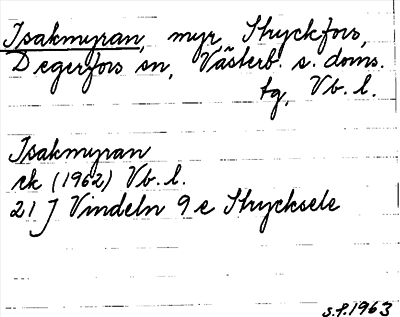 Isakmyran, myr, Stryckfors,
Degerfors sn, Västerb. s. doms.
tg, Vb. l.
Isakmyran
rk (1962) Vb. l.
21 J Vindeln 9 e Strycksele
s.f. 1963